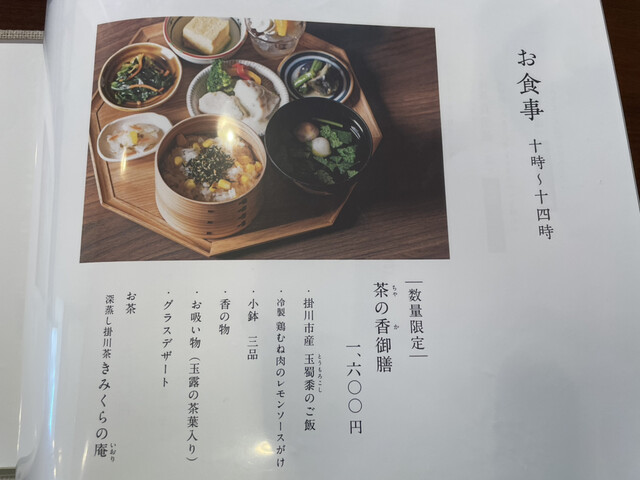 お食事
十時〜十四時
数量限定
茶の香御膳
ちゃ か
一、六〇〇円
・掛川市産 玉蜀黍のご飯
とうもろこし
・冷製 鶏むね肉のレモンソースがけ
・小鉢 三品
・香の物
・お吸い物（玉露の茶葉入り）
・グラスデザート
お茶
深蒸し掛川茶 きみくらの庵
いおり